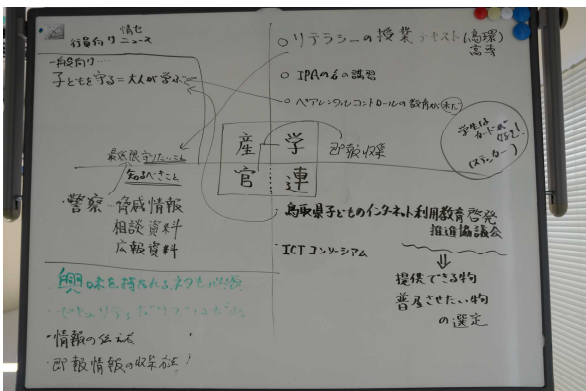 情セ
行員向けニュース
一般向け…
子どもを守る=大人が学ぶ
最低限守りたいこと
知るべきこと
・警察…脅威情報
相談資料
広報資料
興味を持たれるネタも必要
・情報の伝え方
・即報情報の収集方法!
○リテラシーの授業 テキスト(高環)
高専
○IPAの名の講習
○ペアレンタルコントロールの教育が
学生は
カードが
好き!
(ステッカー)
産 学
官 連
即報収集
・鳥取県子どものインターネット利用教育啓発
推進協議会
・ICTコンソーシアム
⇓
提供できる物
普及させたい物
の選定